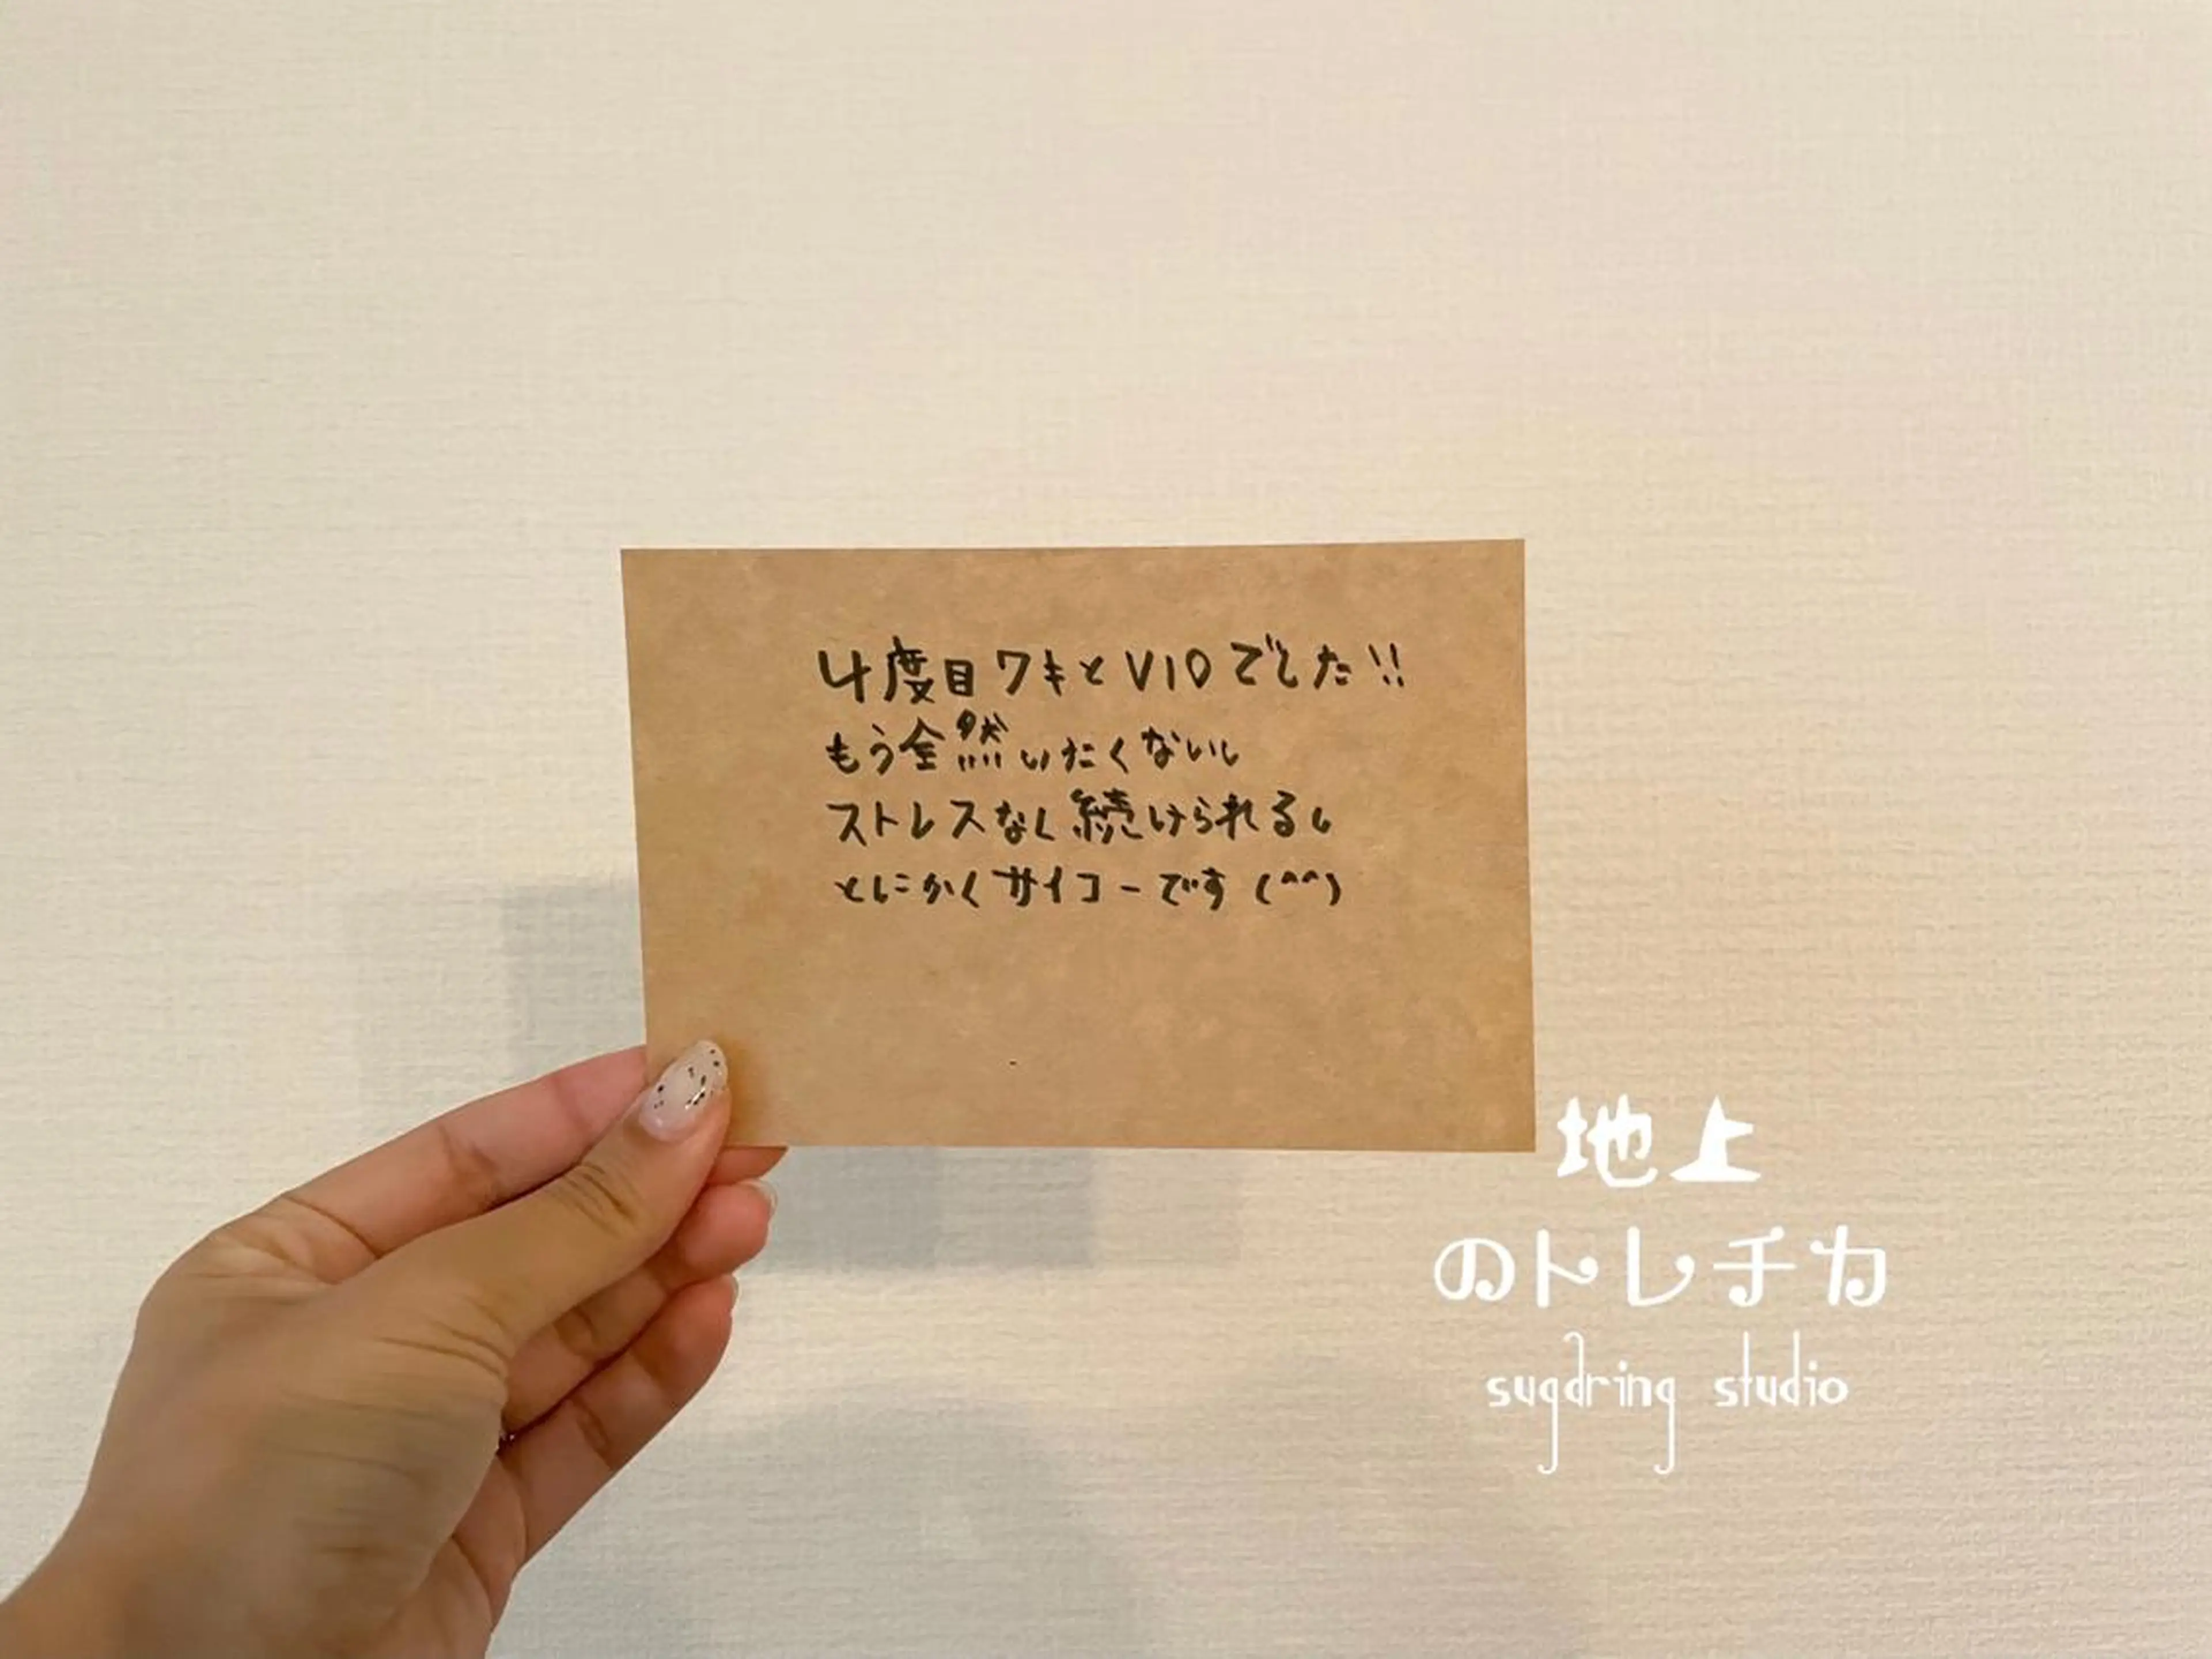 4度目ワキとVIOでした!!
もう全然いたくないし
ストレスなく続けられるし
とにかくサイコーです(^^)
地上
のトレチカ
sugdring studio